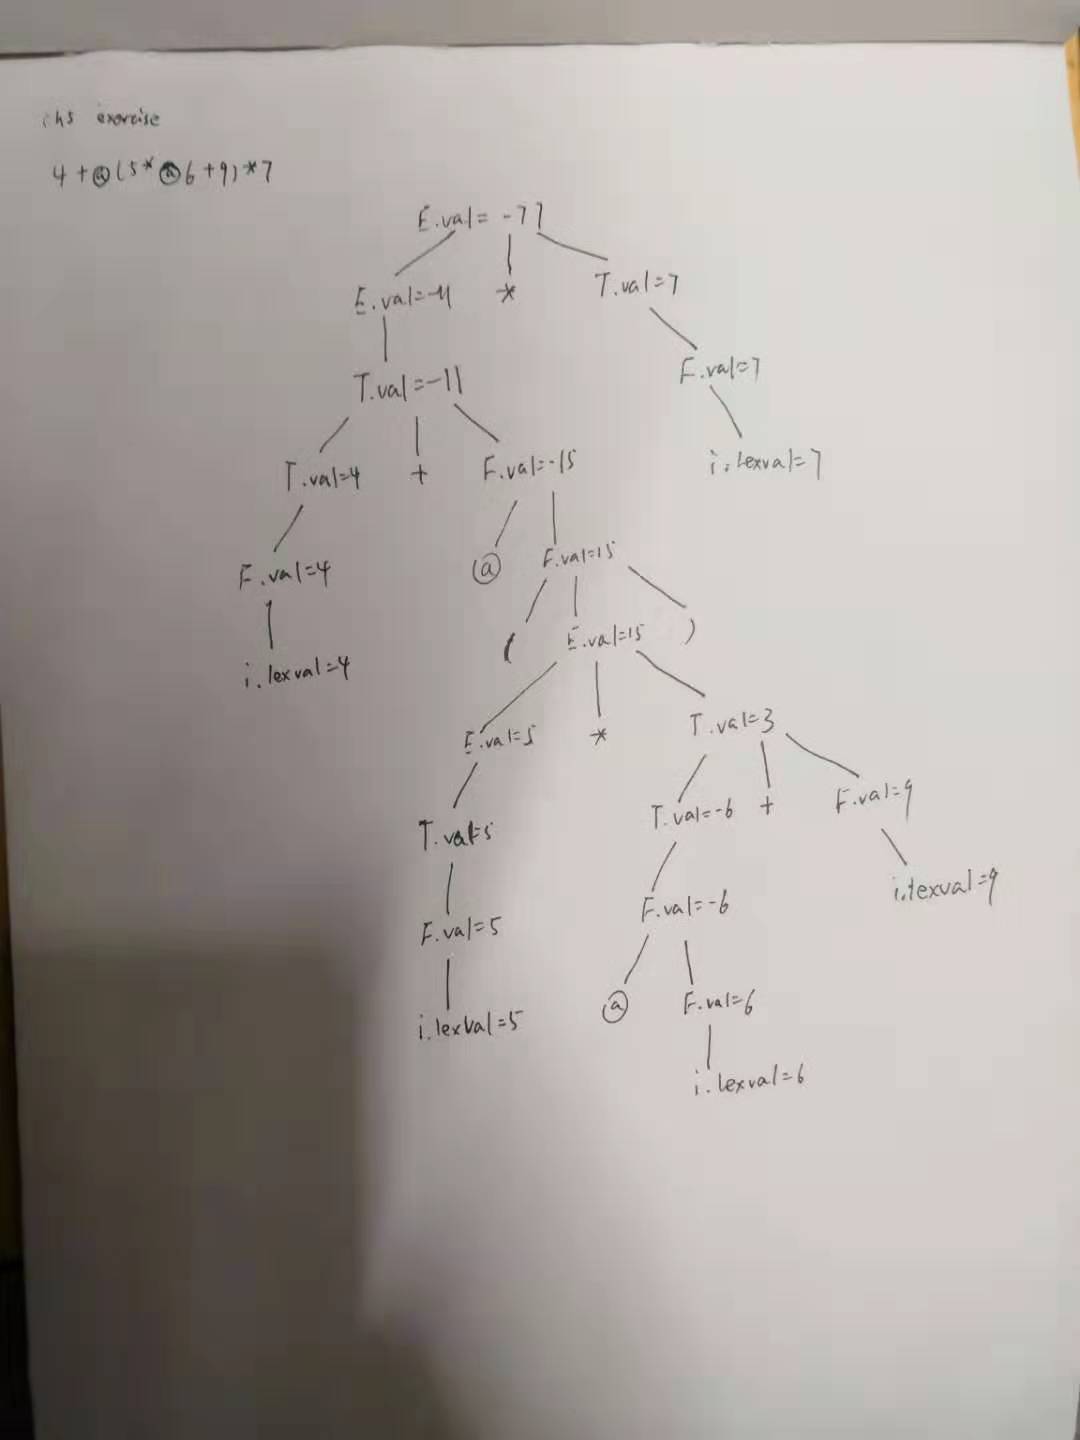 ch5 exercise
4+@(5*@6+9)*7
E.val=-77
E.val=-11 * T.val=7
T.val=-11 F.val=7
T.val=4 + F.val=-15 i.lexval=7
F.val=4 @ F.val=15
i.lexval=4 ( E.val=15 )
E.val=5 * T.val=3
T.val=5 T.val=-6 + F.val=9
F.val=5 F.val=-6 i.lexval=9
i.lexval=5 @ F.val=6
i.lexval=6